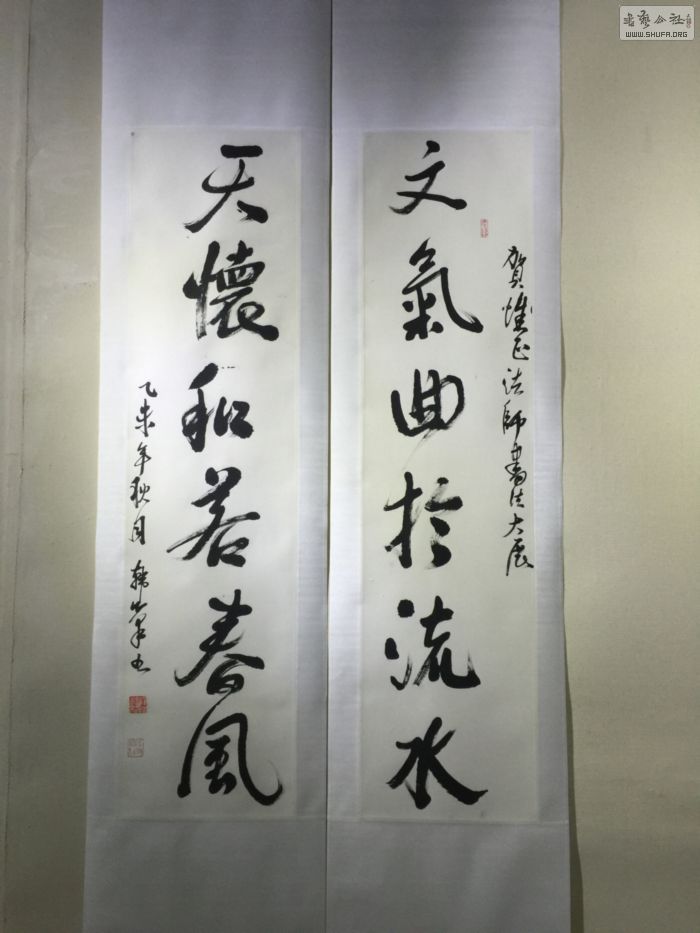 文氣曲於流水
賀惟正法師書法大展
天懷和若春風
乙未年秋月韓
書藝公社
WWW.SHUFA.ORG